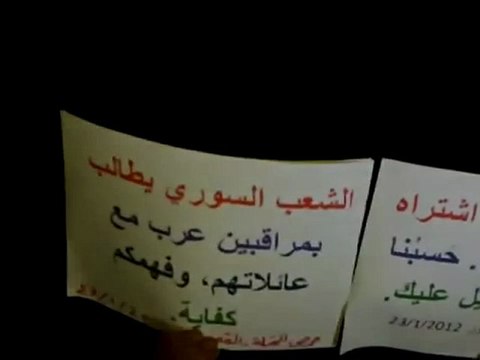 الشعب السوري يطالب
بمراقبين عرب مع
عائلاتهم، وفهمكم
كفاية.
حمص
اشتراه
. حَسبُنا
عليك.
23/1/2012